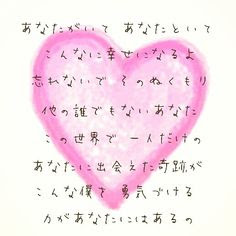 あなたがいて あなたといて
こんなに幸せになるよ
忘れないで そのぬくもり
他の誰でもないあなた
この世界で 一人だけの
あなたに出会えた奇跡が
こんな僕を 勇気づける
力があなたにはあるの